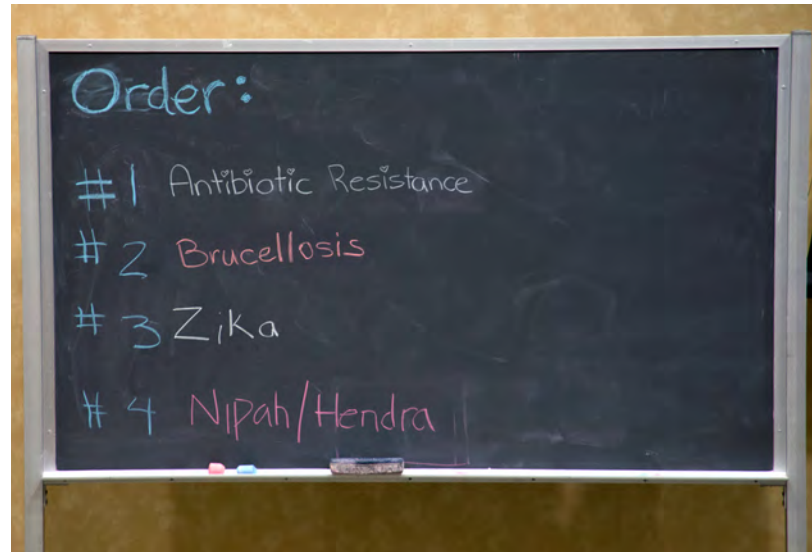 Order:
#1 Antibiotic Resistance
#2 Brucellosis
#3 Zika
#4 Nipah/Hendra